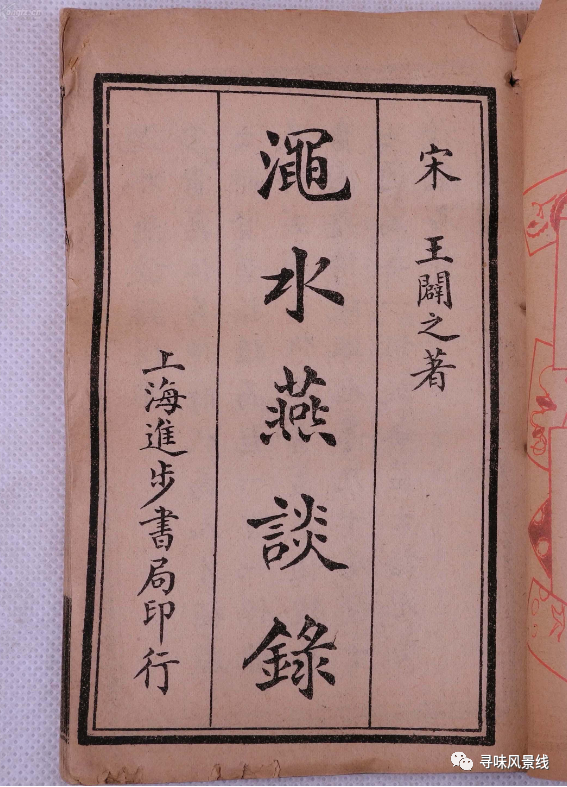 宋 王闢之著
澠水燕談錄
上海進步書局印行
寻味风景线